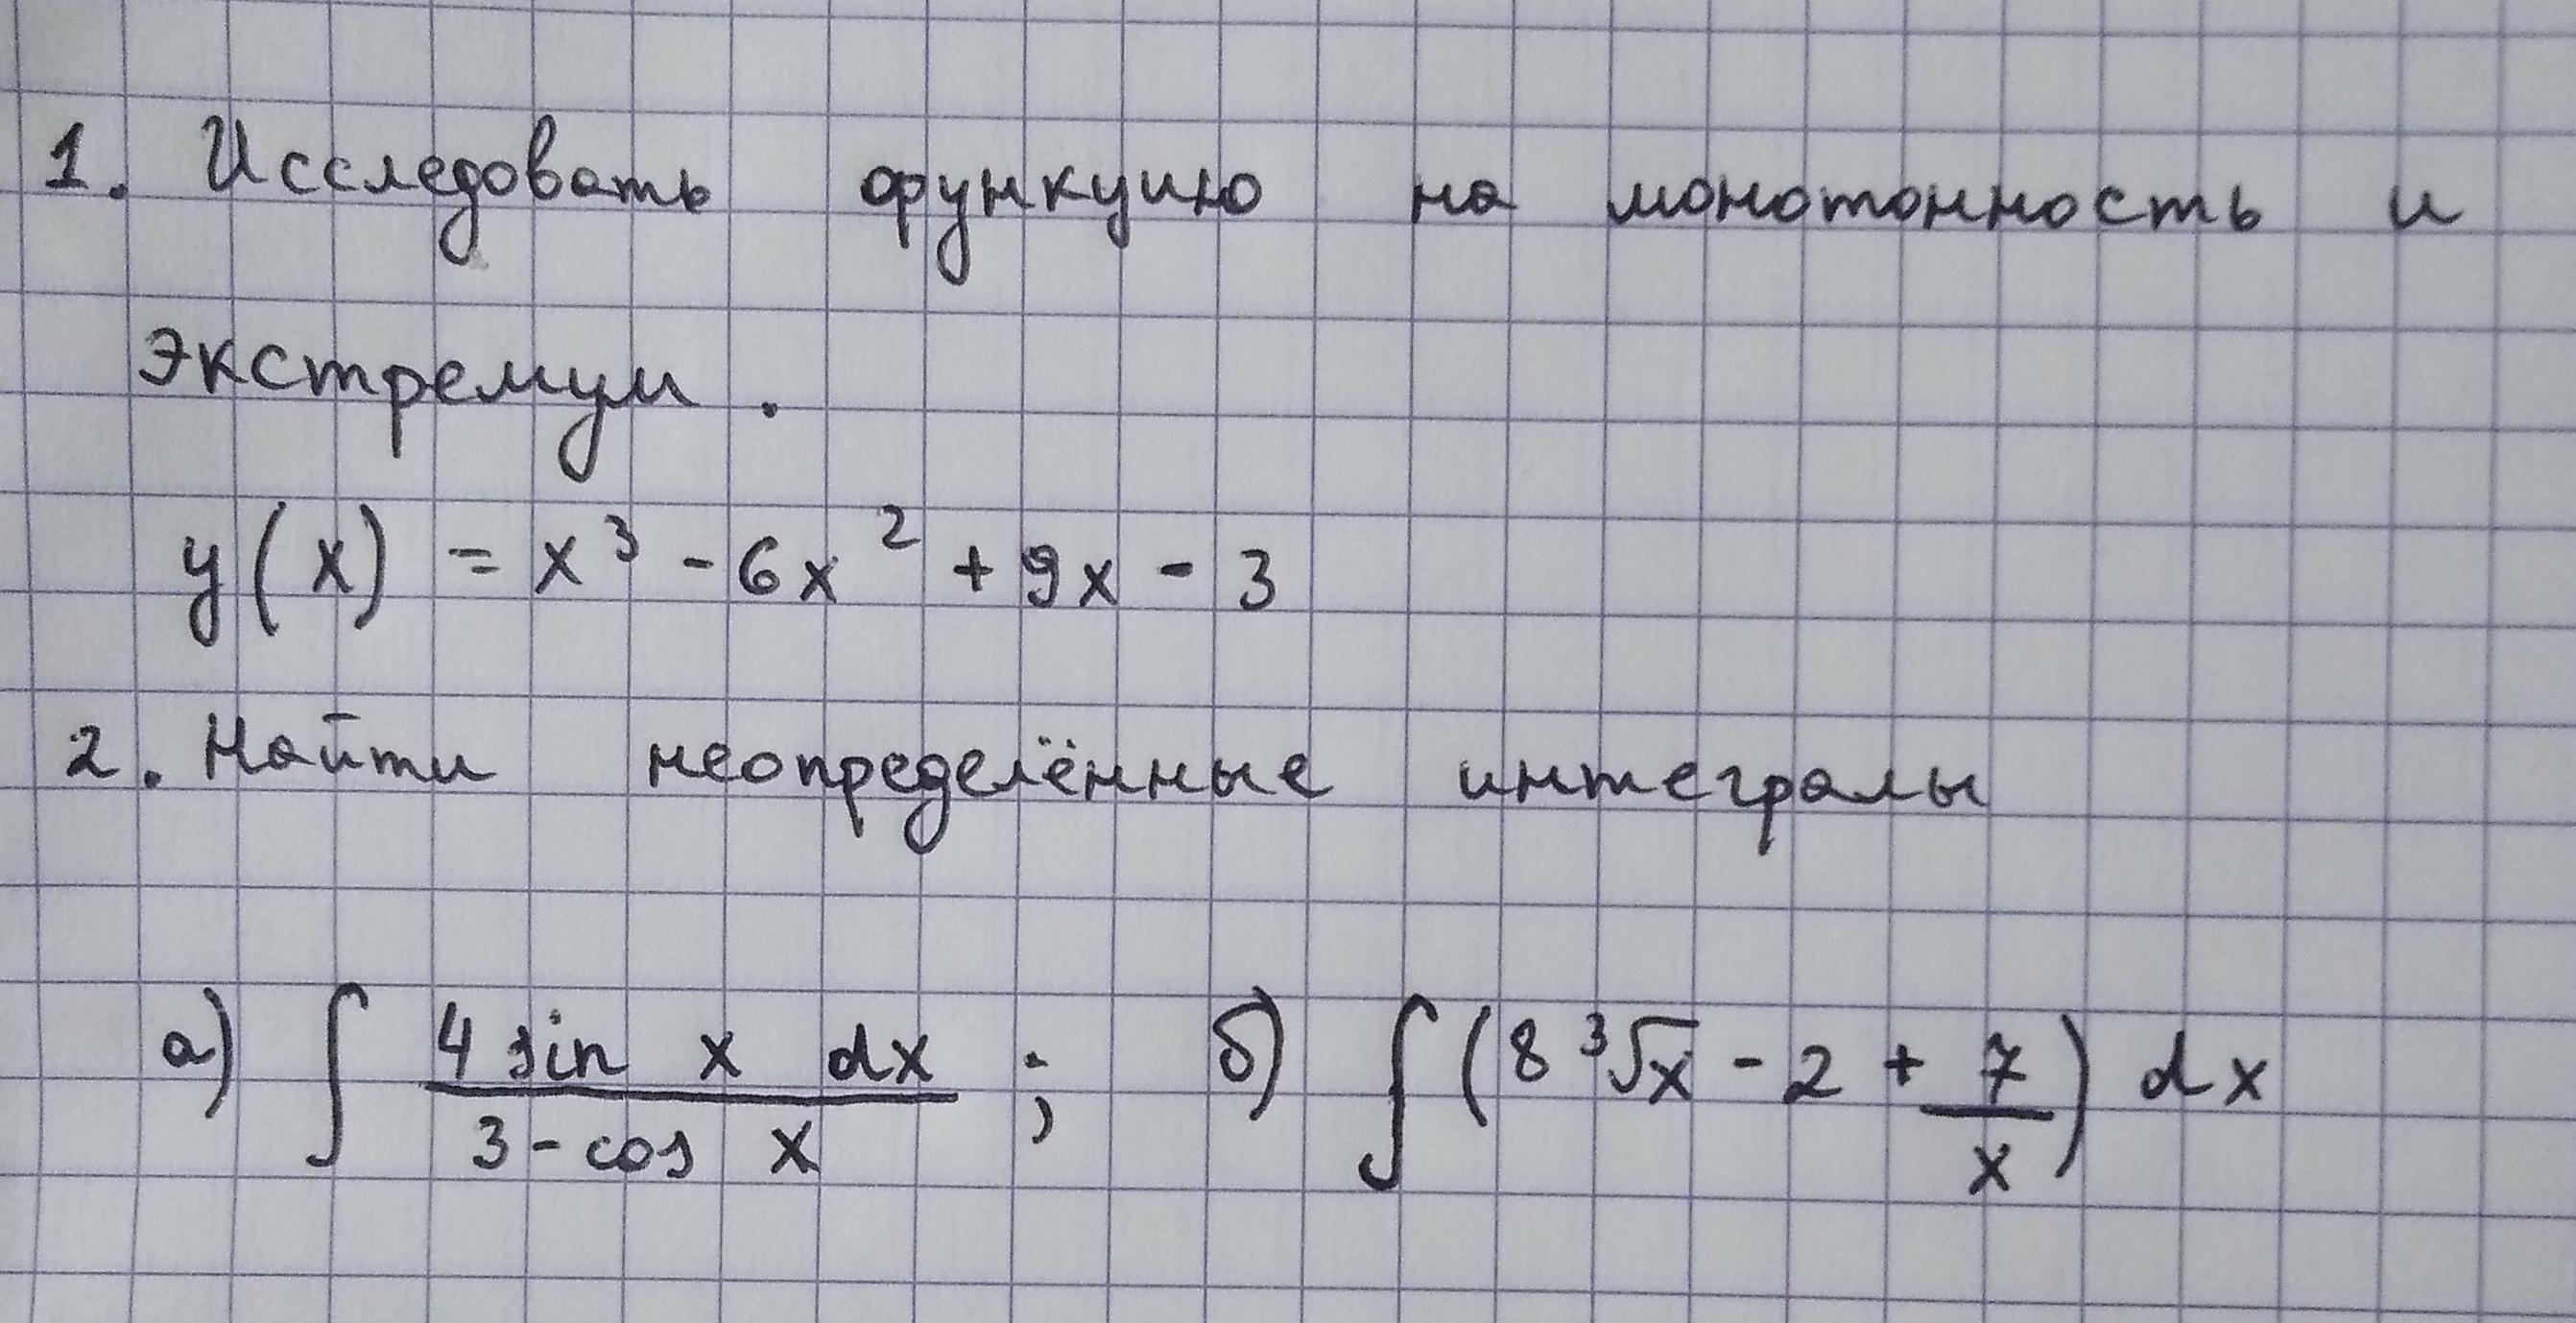 1. Исследовать функцию на монотонность и
экстремум.
y(x) = x³ - 6x² + 9x - 3
2. Найти неопределённые интегралы
а) ∫ (4 sin x dx)/(3 - cos x) ; б) ∫ (8 ³√x - 2 + 7/x) dx